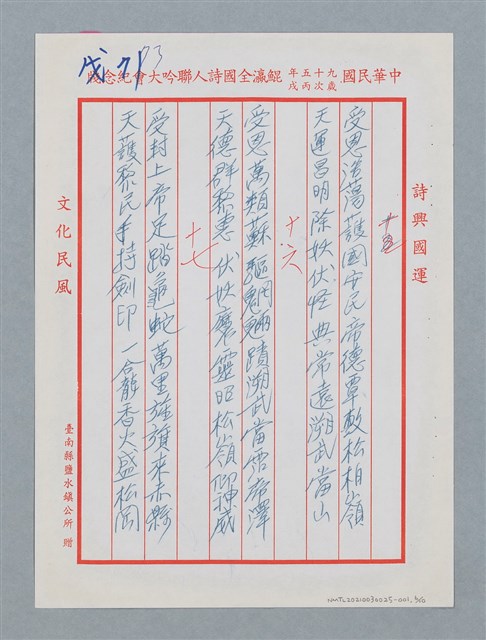 戌 213
中華民國九十五年歲次丙戌鯤瀛全國詩人聯吟大會紀念牋
詩興國運
十五
受恩浩蕩護國安民帝德覃敷松柏嶺
天運昌明除妖伏怪典常遠溯武當山
十六
受恩萬類蘇驅魍魎蹟溯武當霑帝澤
天德群黎惠伏妖魔靈昭松嶺仰神威
十七
受封上帝足踏龜蛇萬里旌旗來赤縣
天護黎民手持劍印一龕香火盛松岡
文化民風
臺南縣鹽水鎮公所 贈
NMTL20210030025-001